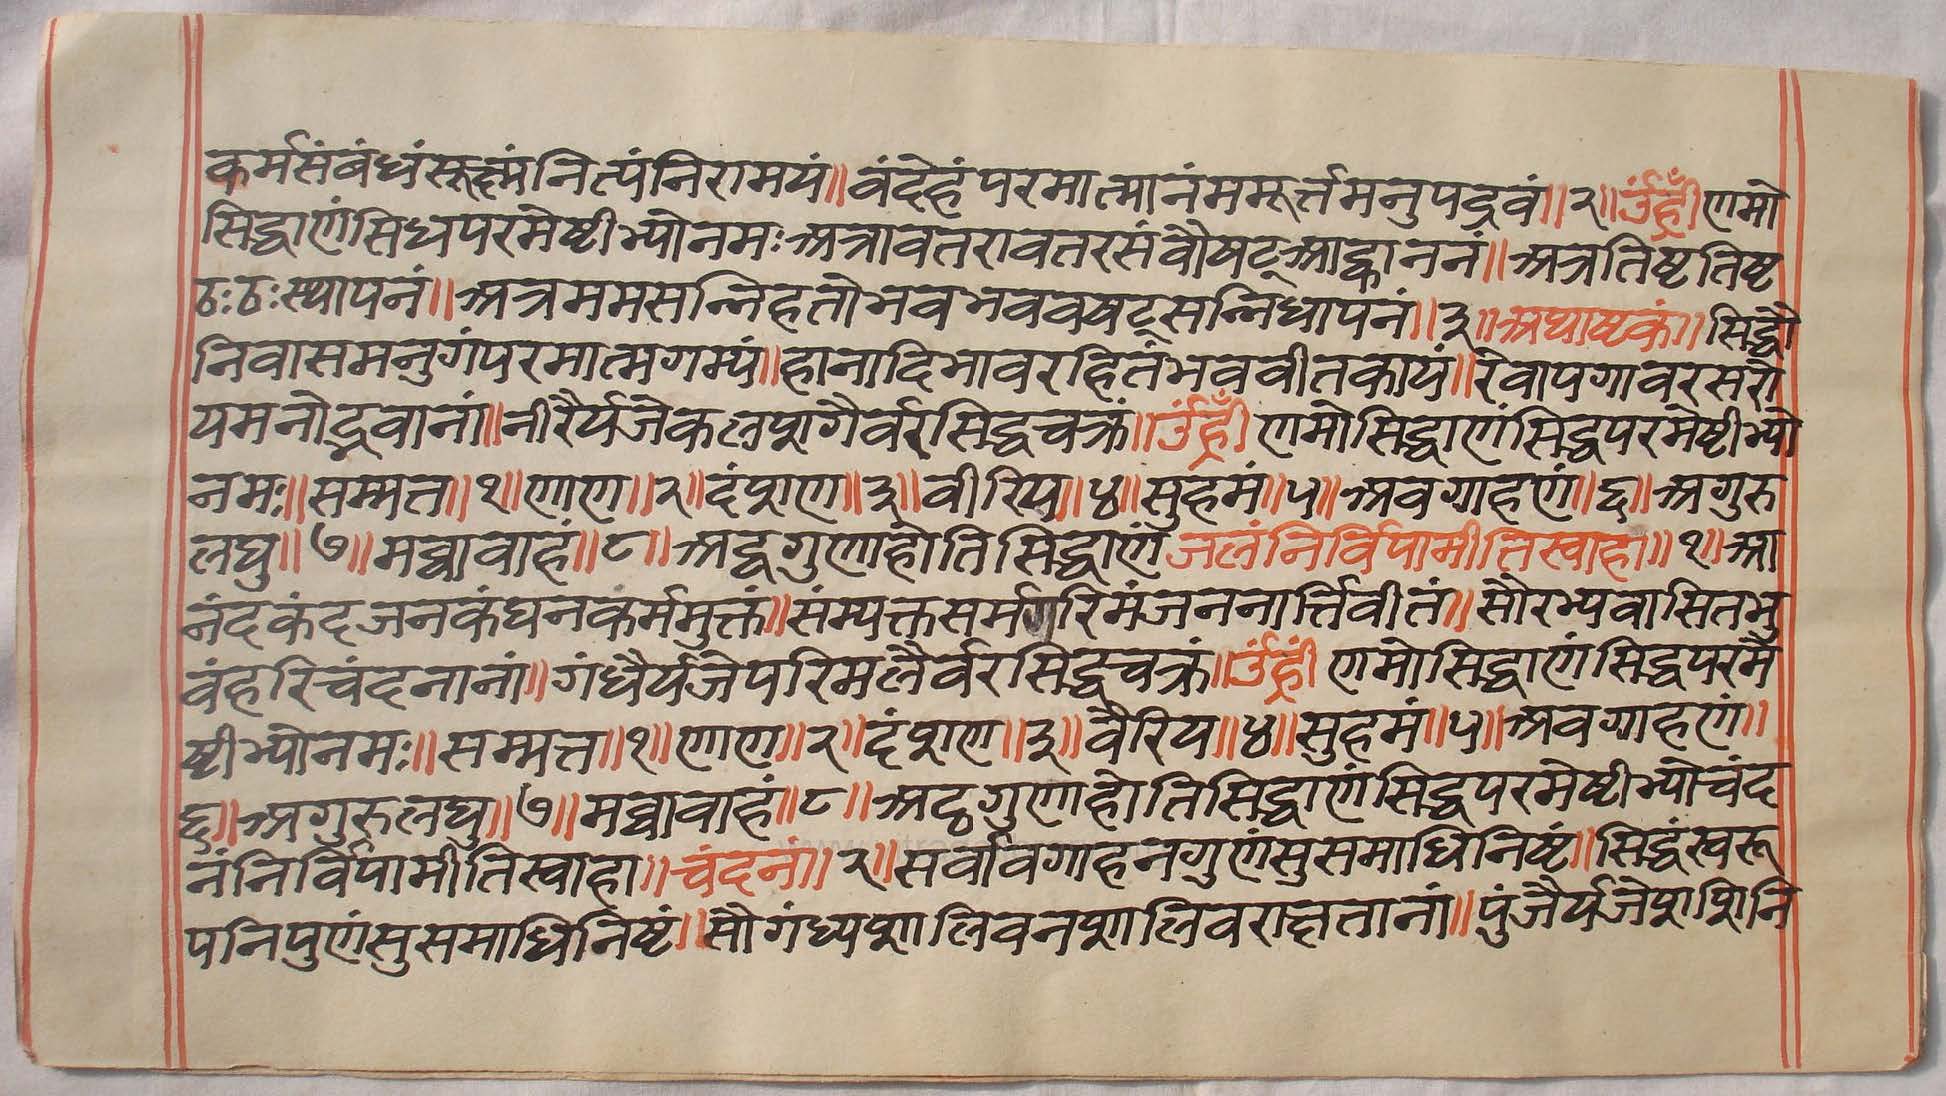 कर्मसंबंधंसूक्ष्मंनित्यंनिरामयं॥वंदेहंपरमात्मानंममूर्त्तमनुपद्रवं॥२॥उँह्रीँणमो
सिद्धाणंसिधपरमेष्टीभ्योनमःअत्रावतरावतरसंवौषट्आह्वाननं॥अत्रतिष्टतिष्ट
ठःठःस्थापनं॥अत्रममसन्निहतोभवभववषट्सन्निधापनं॥३॥अथाष्टकं॥सिद्धौ
निवासमनुगंपरमात्मगम्यं॥हानादिभावरहितंभववीतकायं॥रेवापगावरसरो
यमनोद्रवानां॥नीरैर्यजेकलशगैर्वरसिद्धचक्रं॥उँह्रीँणमोसिद्धाणंसिद्धपरमेष्टीभ्यो
नमः॥सम्मत्त॥१॥णाण॥२॥दंशण॥३॥वीरिय॥४॥सुहमं॥५॥अवगाहणं॥६॥अगुरु
लघु॥७॥मव्वावाहं॥८॥अट्ठगुणाहोतिसिद्धाणंजलंनिर्विपामीतिस्वाहा॥१॥आ
नंदकंदजनकंघनकंर्ममुक्तं॥संम्यक्तसर्मगरिमंजननार्त्तिवीतं॥सौरभ्यवासितभु
वंहरिचंदनानां॥गंधैर्यजेपरिमलैर्वरसिद्धचक्रं॥उँह्रीं णमोसिद्धाणंसिद्धपरमे
ष्टीभ्योनमः॥सम्मत्त॥१॥णाण॥२॥दंशण॥३॥वैरिय॥४॥सुहमं॥५॥अवगाहणं॥
६॥अगुरुलघु॥७॥मव्वावाहं॥८॥अट्ठगुणाहोतिसिद्धाणंसिद्धपरमेष्टीभ्योचंद
नंनिर्विपामीतिस्वाहा॥चंदनं॥२॥सर्वावगाहनगुणंसुसमाधिनिष्टं॥सिद्धंस्वरू
पनिपुणंसुसमाधिनिष्टं॥सौगंध्यशालिवनशालिवराक्षतानां॥पुंजैर्यजेशशिनि